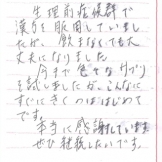 生理前症候群で
漢方を服用していまし
たが、飲まなくても大
丈夫になりました
今まで色々なサプリ
を試しましたが、こんなに
すぐにきくのははじめて
です。
本当に感謝しています
ぜひ継続したいです。